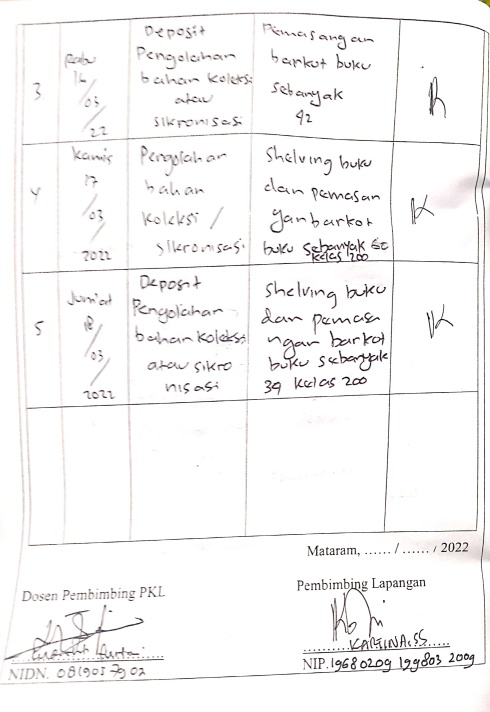 3
Rabu
16
/
03
/
22
Deposit
Pengolahan
bahan koleksi
atau
sikronisasi
Pemasangan
barkot buku
sebanyak
42
4
Kamis
17
/
03
/
2022
Pengolahan
bahan
koleksi /
sikronisasi
Shelving buku
dan pemasan
gan barkot
buku sebanyak
kelas 200
5
Jumiat
18
/
03
/
2022
Deposit
Pengolahan
bahan koleksi
atau sikro
nisasi
Shelving buku
dan pemasa
ngan barkot
buku sebanyak
39 kelas 200
Mataram, ...... / ...... / 2022
Dosen Pembimbing PKL
Pembimbing Lapangan
KARTINA.SS
NIDN. 0819057902
NIP. 19680209 199803 2009